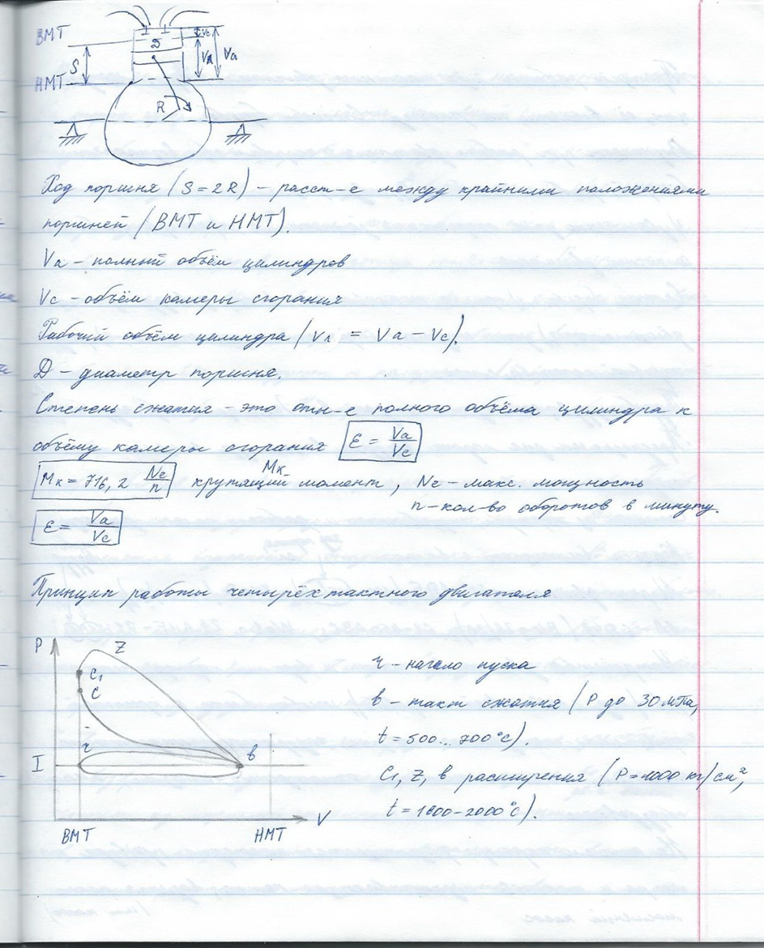 ВМТ
S
НМТ
D
Vc
Vл
Va
R
Ход поршня (S = 2R) - расст-е между крайними положениями
поршней (ВМТ и НМТ).
Va - полный объём цилиндров
Vc - объём камеры сгорания
Рабочий объём цилиндра (Vл = Va - Vc).
Д - диаметр поршня.
Степень сжатия - это отн-е полного объёма цилиндра к
объёму камеры сгорания ε = Va/Vc
Мк = 716,2 Ne/n крутящий момент Мк, Ne - макс. мощность
n - кол-во оборотов в минуту.
ε = Va/Vc
Принцип работы четырёхтактного двигателя
P
Z
C1
C
r
I
в
ВМТ
НМТ
V
r - начало пуска
в - такт сжатия (P до 30 мПа,
t = 500...700°C).
C1, Z, в расширения (P = 1000 кг/см²,
t = 1800-2000°C).